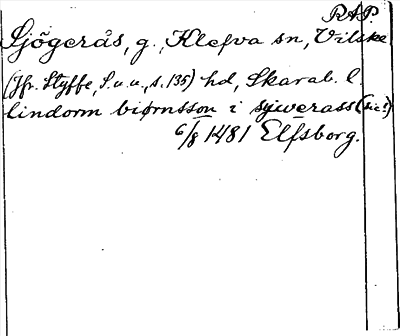 RAP.
Sjögerås, g., Klefva sn, Vilske
(Jfr. Styffe, S.u.u., s. 135) hd, Skarab. l.
lindorm biørnsson i sywerass (sic!)
6/8 1481 Elfsborg.